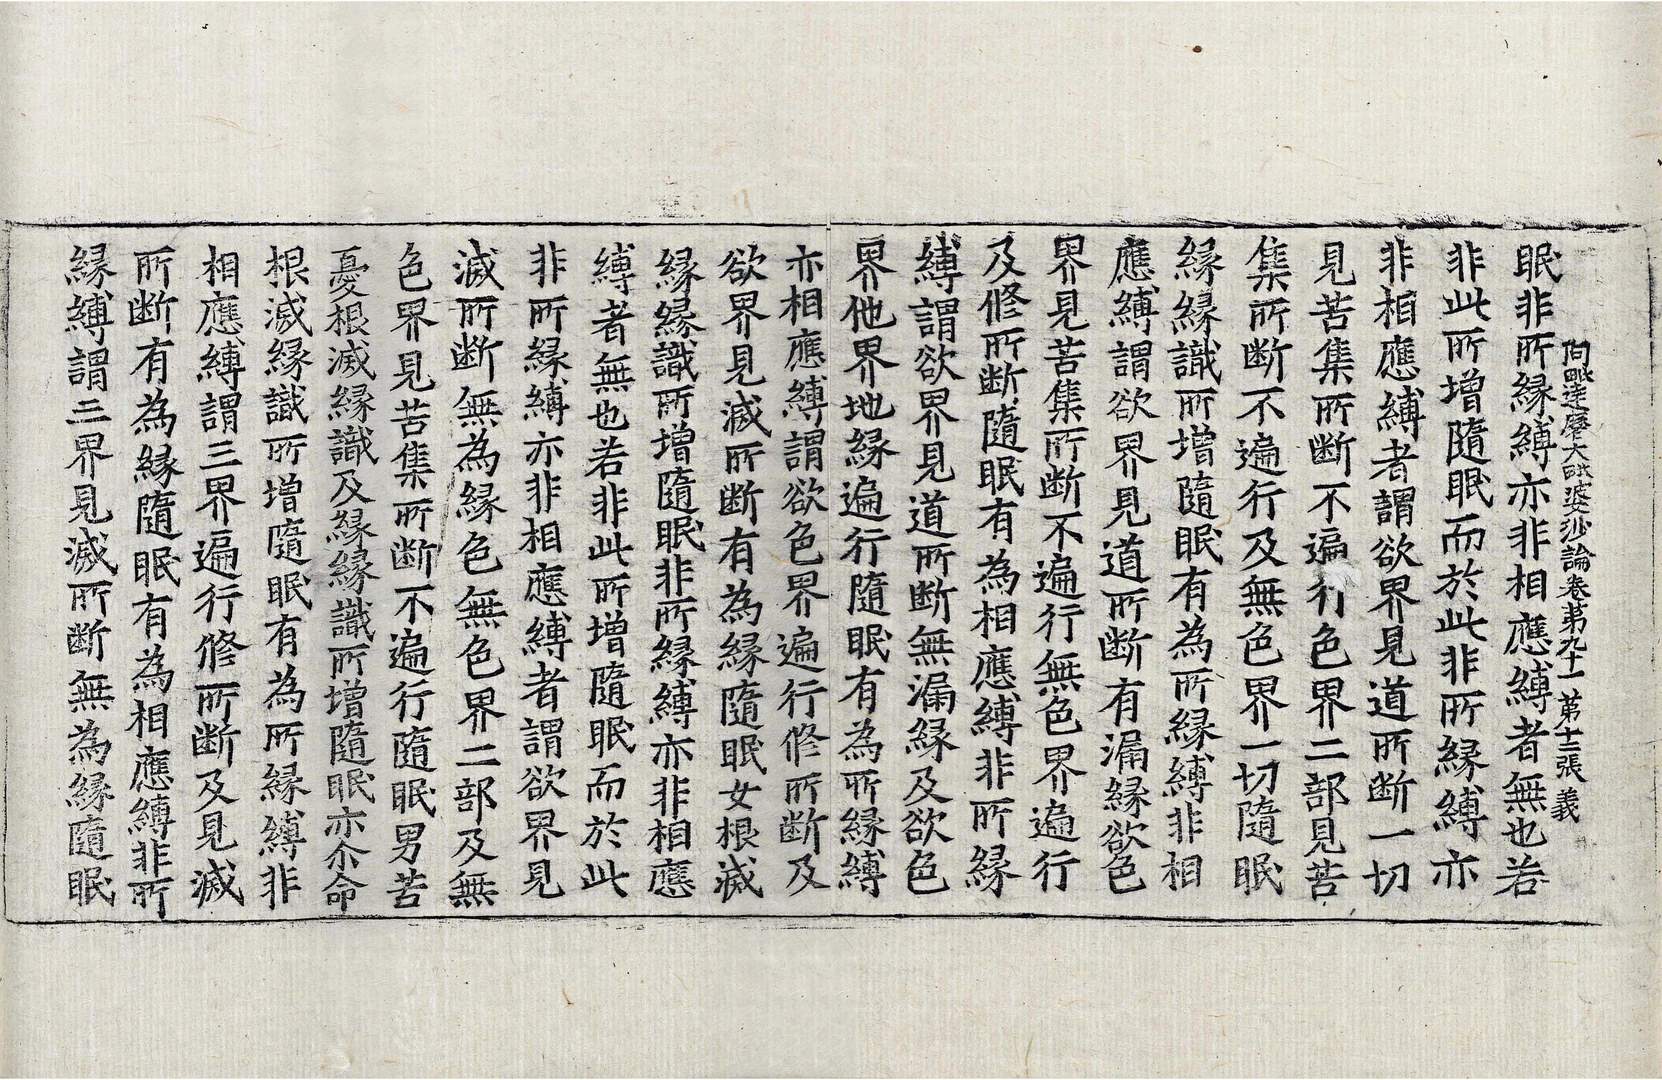 阿毗達磨大毗婆沙論卷第九十一　第十三張　義
眠非所縁縛亦非相應縛者無也若
非此所增隨眠而於此非所縁縛亦
非相應縛者謂欲界見道所断一切
見苦集所断不遍行色界二部見苦
集所断不遍行及無色界一切隨眠
縁縁識所增隨眠有為所縁縛非相
應縛謂欲界見道所断有漏縁欲色
界見苦集所断不遍行無色界遍行
及修所断隨眠有為相應縛非所縁
縛謂欲界見道所断無漏縁及欲色
界他界地縁遍行隨眠有為所縁縛
亦相應縛謂欲色界遍行修所断及
欲界見滅所断有為縁隨眠女根滅
縁縁識所增隨眠非所縁縛亦非相應
縛者無也若非此所增隨眠而於此
非所縁縛亦非相應縛者謂欲界見
滅所断無為縁色無色界二部及無
色界見苦集所断不遍行隨眠男苦
憂根滅縁識及縁縁識所增隨眠亦尒命
根滅縁識所增隨眠有為所縁縛非
相應縛謂三界遍行修所断及見滅
所断有為縁隨眠有為相應縛非所
縁縛謂三界見滅所断無為縁隨眠